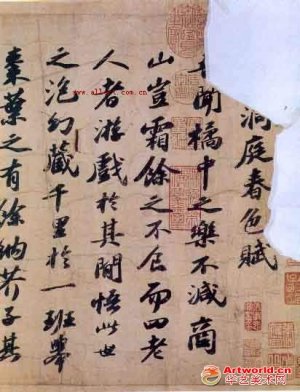 洞庭春色賦
吾聞橘中之樂不減商
山豈霜餘之不食而四老
人者游戲於其間悟此世
之泡幻藏千里於一班舉
棗葉之有餘納芥子其
Artworld.cn
华艺美术网